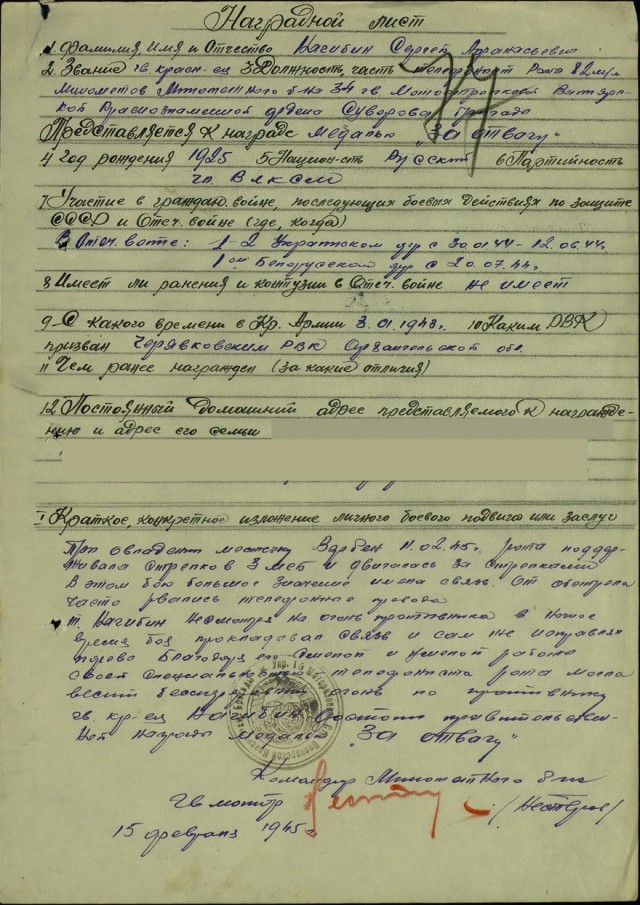 Наградной лист
1. Фамилия, имя и Отчество Нагибин Сергей Афанасьевич
2. Звание гв. красн-ец 3 Должность, часть телефонист Рота 82 м/м
Минометов Минометного б-на 34 гв Мотострелковой
кой Краснознаменной ордена Суворова бригада
Представляется к награде медалью "За отвагу"
4) Год рождения 1925 5 Национ-сть Русский 6 Партийность
чл. ВЛКСМ
7 Участие в граждан. войне, последующих боевых действиях по защите
СССР и Отеч. войне (где, когда)
В Отеч. войне: 2 Украинском фр с 30.01.44 - 12.06.44г.
1ом Белорусской фр с 20.07.44г.
8 Имеет ли ранения и контузии в Отеч. войне не имеет
9 - С какого времени в Кр. Армии 3.01.1943г. 10 Каким РВК
призван РВК обл.
11 Чем ранее награжден (за какие отличия)
12 Постоянный домашний адрес представляемого к награжде-
нию и адрес его семьи
I Краткое, конкретное изложение личного боевого подвига или заслуг
При овладении местечку 11.02.45г. рота поддер-
живала стрелков 3 МСБ и двигалась за стрелками
В этом бою большое значение имела связь. От обстрела
часто рвались телефонные провода
т. Нагибин несмотря на огонь противника в ночное
время боя прокладывал связь и сам же исправлял
Благодаря его смелой и умелой работе
своей специальности телефониста рота могла
вести огонь по противнику
гв. кр-ец Нагибин достоин правительствен-
ной награды медалью "За отвагу"
Командир Минометного б-на
Гв майор /Нестеров/
15 февраля 1945г
74